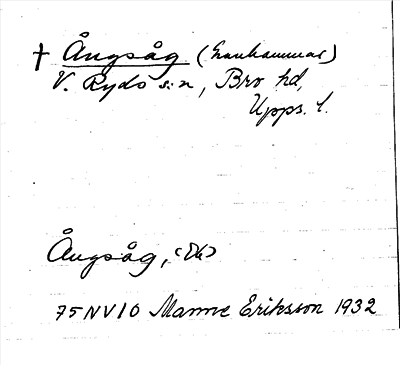 † Ångsåg (Granhammar)
V. Ryds s:n, Bro hd,
Upps. l.
Ångsåg, <Ek>
75 NV10 Manne Eriksson 1932